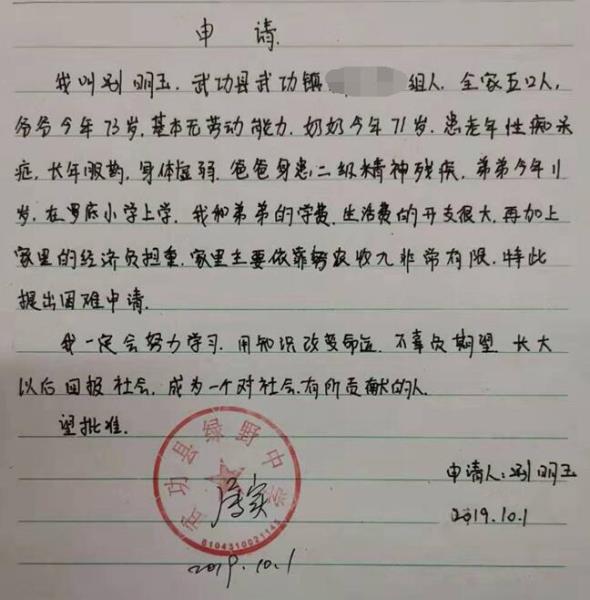 申请.
我叫刘明玉. 武功县武功镇 组人. 全家五口人,
爷爷今年73岁, 基本无劳动能力. 奶奶今年71岁. 患老年性痴呆
症, 长年服药, 身体虚弱. 爸爸身患二级精神残疾. 弟弟今年11
岁, 在罗底小学上学. 我和弟弟的学费. 生活费的开支很大, 再加上
家里的经济负担重, 家里主要依靠务农收入非常有限. 特此
提出困难申请.
我一定会努力学习. 用知识改变命运. 不辜负期望 长大
以后回报社会, 成为一个对社会有所贡献的人.
望批准.
武功县绿野中学
属实
6104310021145
2019.10.1
申请人: 刘明玉
2019.10.1